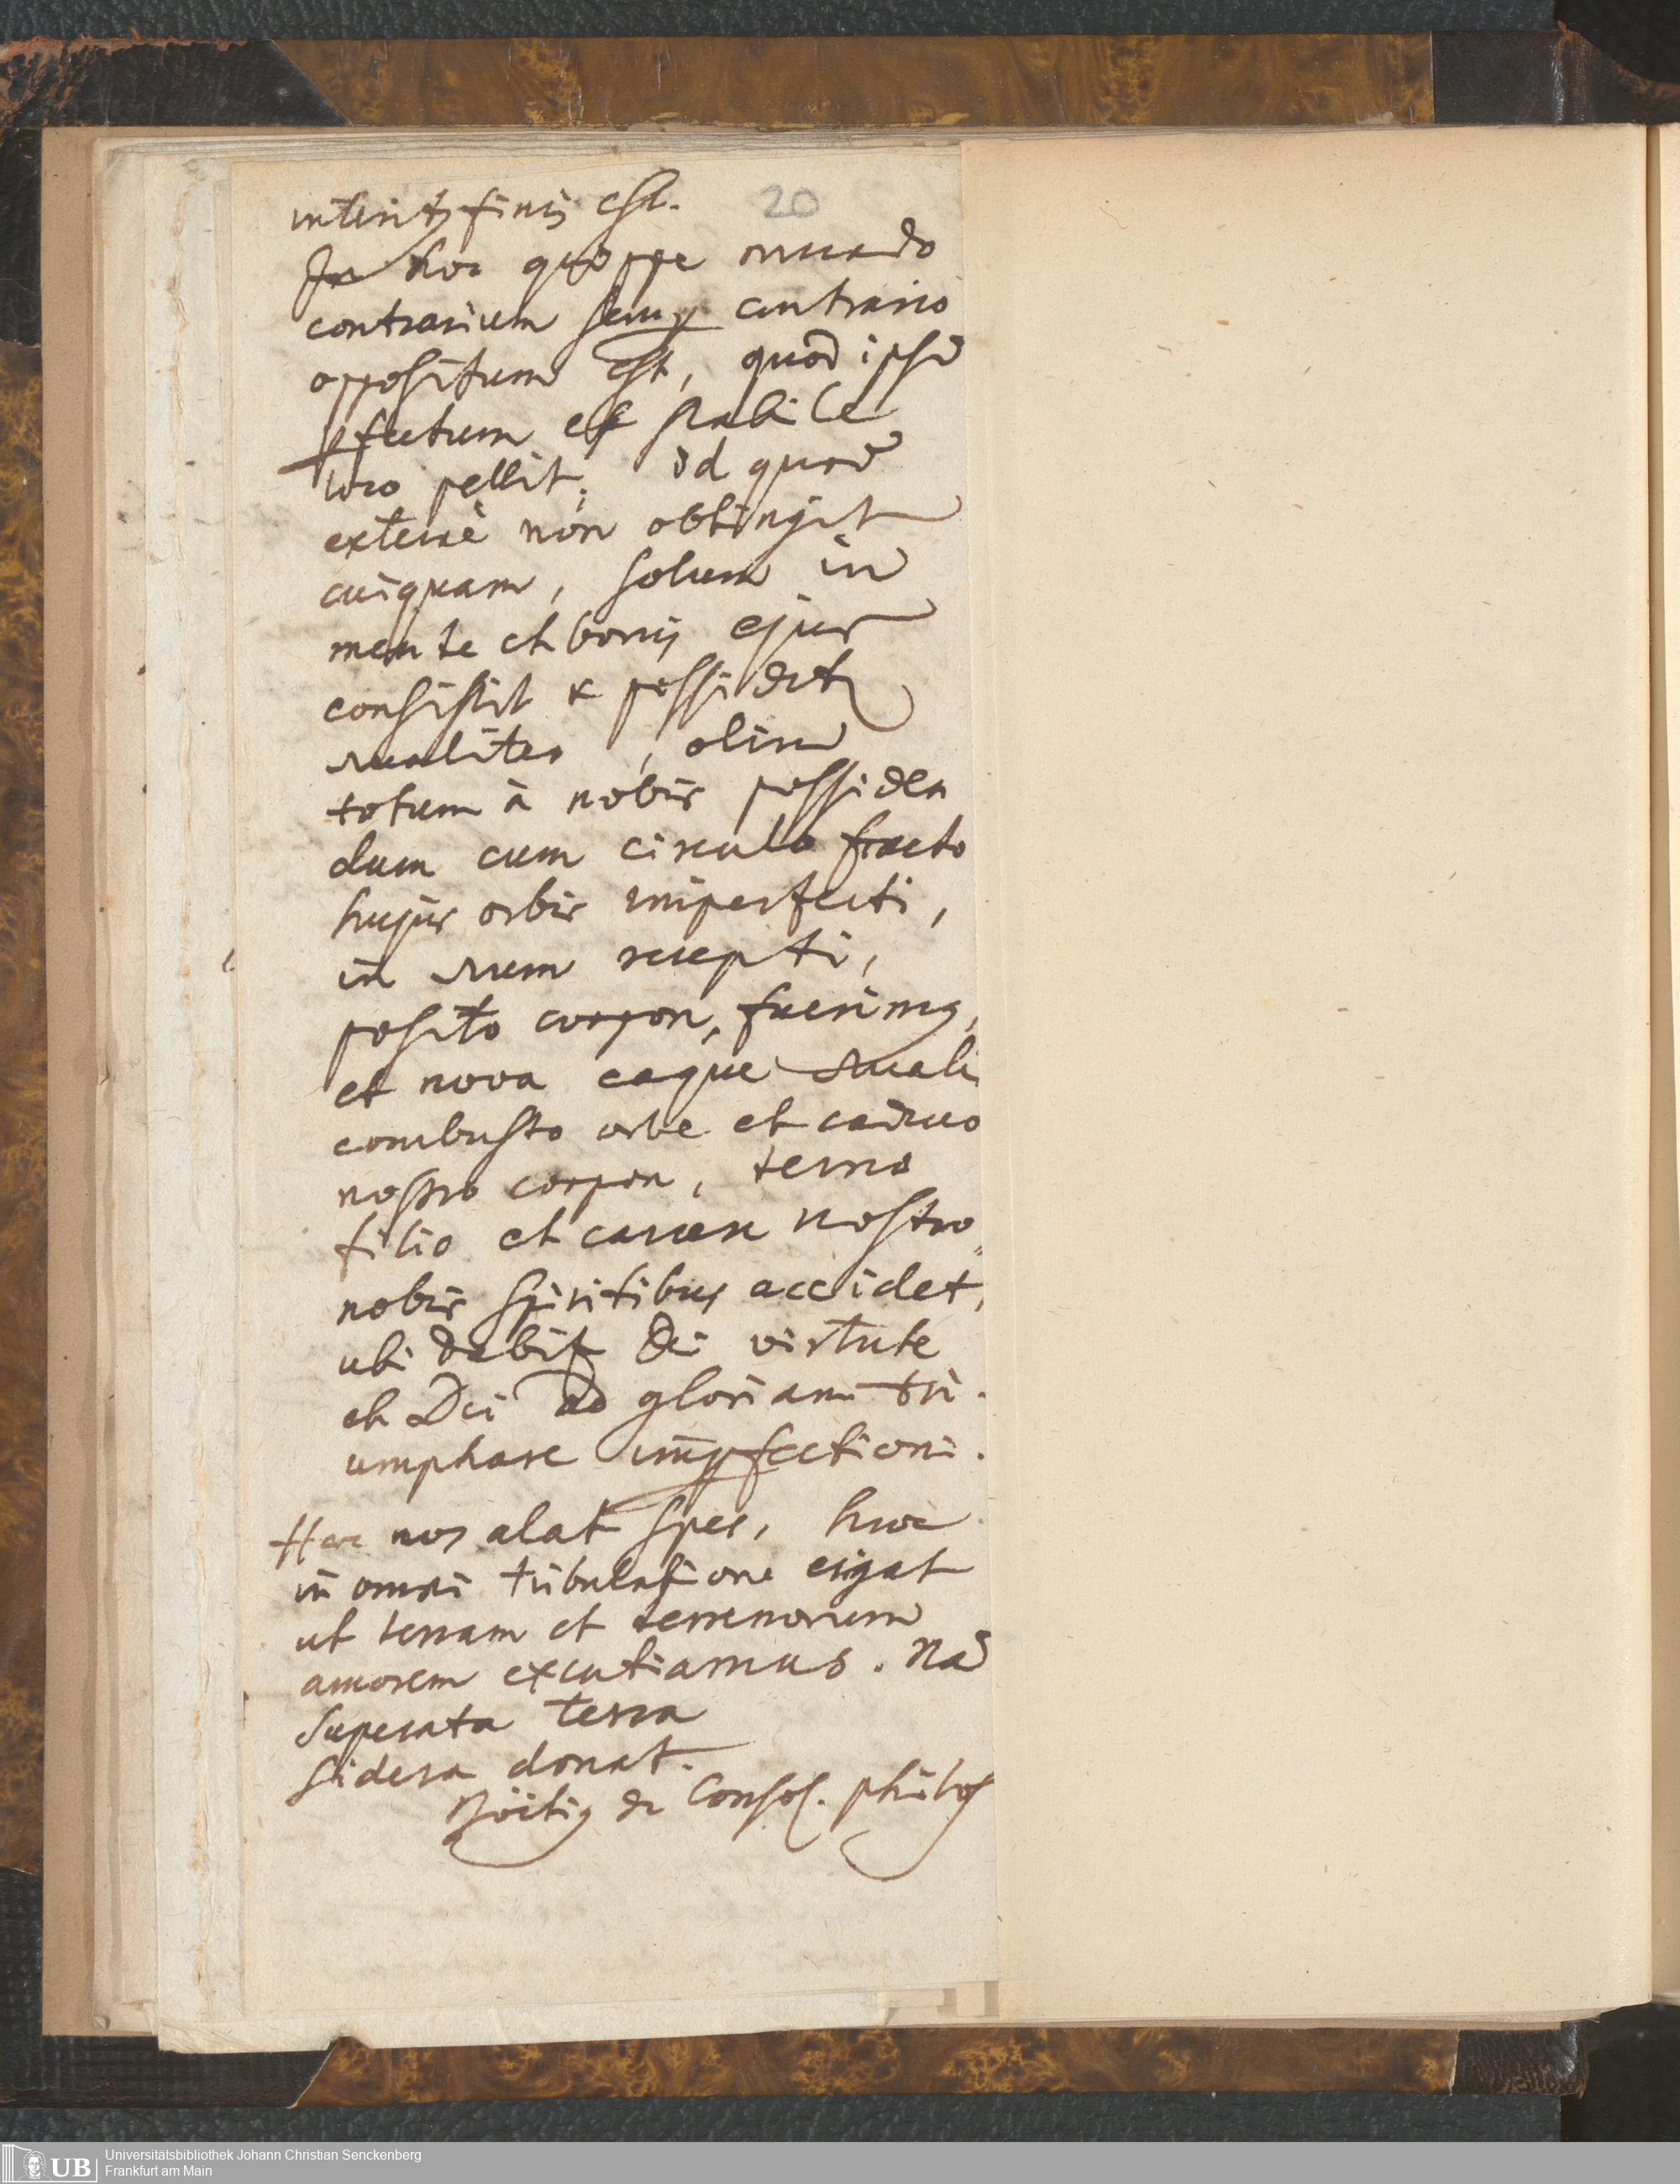 finis est. 20
In hoc quippe mundo
contrarium semp contrario
oppositum est, quod ipsū
pfectum et stabile
loco pellit, id quod
externè non obtingit
cuiquam, solum in
mente et bonis ejus
consistit & possidet
realiter, olim
totum à nobis possiden
dum cum circulo fracto
hujus orbis imperfecti,
in recepti,
posito corpore, fuerimus,
et nova eaque reali
combusto orbe et caduco
nostro corpore, termo
filio et carcere nostro,
nobis spiritibus accidet,
ubi dabit Dei virtute
et Dei ad gloriam tri
umphare impfectioni.
Haec nos alat spes, huc
in omni tribulatione erigat
ut terram et terrenorum
amorem excutiamus. Nā
superata terra
sidera donat.
Böetius de Consol. philos
UB Universitätsbibliothek Johann Christian Senckenberg
Frankfurt am Main